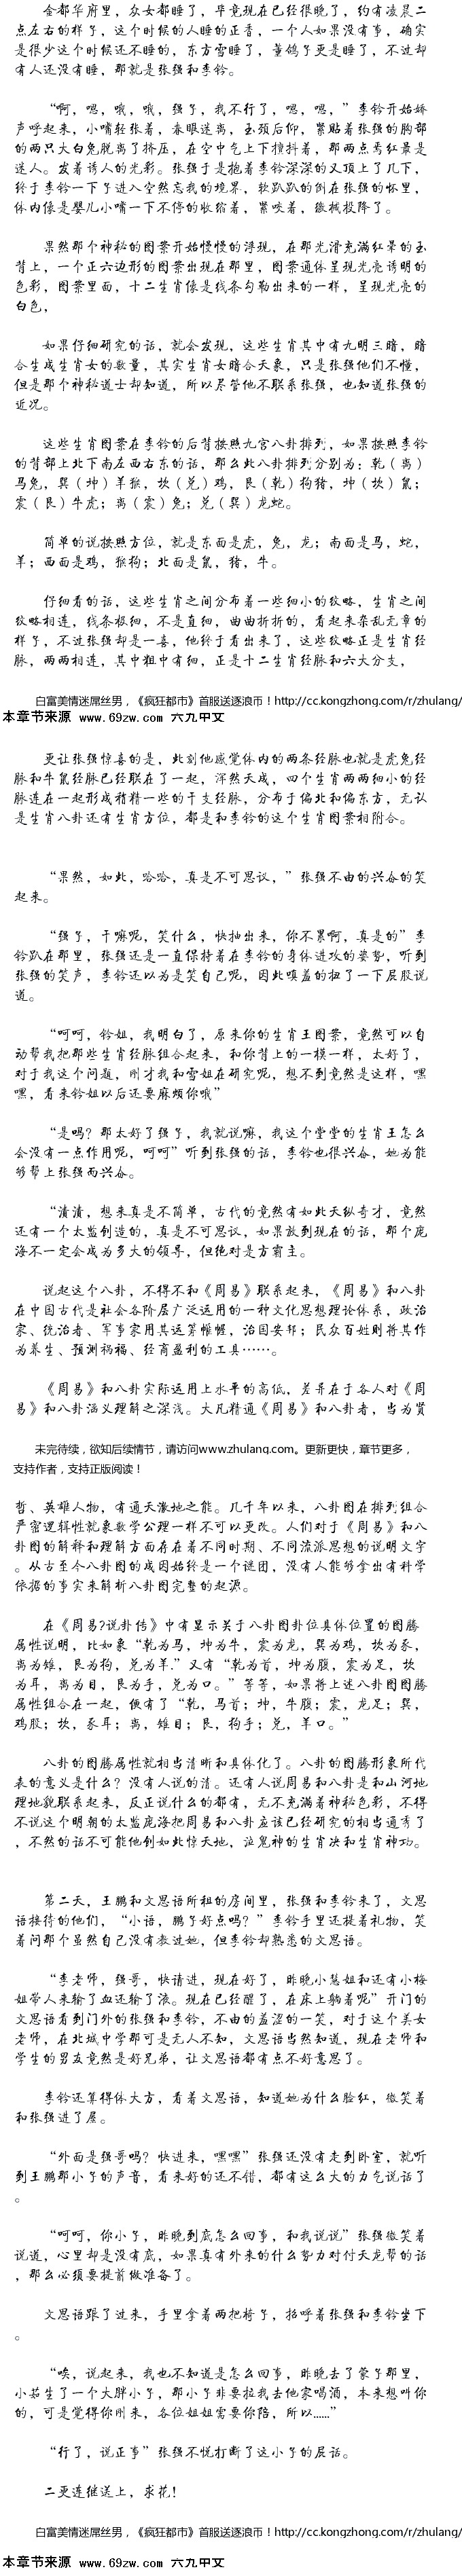 金都华府里，众女都睡了，毕竟现在已经很晚了，约有凌晨二
点左右的样子，这个时候的人睡的正香，一个人如果没有事，确实
是很少这个时候还不睡的，东方雪睡了，董鸽子更是睡了，不过却
有人还没有睡，那就是张强和李铃。
“啊，嗯，哦，哦，强子，我不行了，嗯，嗯，”李铃开始娇
声呼起来，小嘴轻张着，春眼迷离，玉颈后仰，紧贴着张强的胸部
的两只大白兔脱离了挤压，在空中乞上下撞抖着，那两点嫣红最是
迷人。发着诱人的光彩。张强于是抱着李铃深深的又顶上了几下，
终于李铃一下子进入空然忘我的境界，软趴趴的倒在张强的怀里，
体内像是婴儿小嘴一下不停的收缩着，紧咬着，缴械投降了。
果然那个神秘的图案开始慢慢的浮现，在那光滑充满红晕的玉
背上，一个正六边形的图案出现在那里，图案通体呈现光亮透明的
色彩，图案里面，十二生肖像是线条勾勒出来的一样，呈现光亮的
白色，
如果仔细研究的话，就会发现，这些生肖其中有九明三暗，暗
合生成生肖女的数量，其实生肖女暗合天象，只是张强他们不懂，
但是那个神秘道士却知道，所以尽管他不联系张强，也知道张强的
近况。
这些生肖图案在李铃的后背按照九宫八卦排列，如果按照李铃
的背部上北下南左西右东的话，那么此八卦排列分别为：乾（离）
马兔，巽（坤）羊猴，坎（兑）鸡，艮（乾）狗猪，坤（坎）鼠；
震（艮）牛虎；离（震）兔；兑（巽）龙蛇。
简单的说按照方位，就是东面是虎，兔，龙；南面是马，蛇，
羊；西面是鸡，猴狗；北面是鼠，猪，牛。
仔细看的话，这些生肖之间分布着一些细小的纹略，生肖之间
纹略相连，线条极细，不是直细，曲曲折折的，看起来杂乱无章的
样子，不过张强却是一喜，他终于看出来了，这些纹略正是生肖经
脉，两两相连，其中粗中有细，正是十二生肖经脉和六大分支，
白富美情迷屌丝男，《疯狂都市》首服送逐浪币！http://cc.kongzhong.com/r/zhulang/
本章节来源 www.69zw.com 六九中文
更让张强惊喜的是，此刻他感觉体内的两条经脉也就是虎兔经
脉和牛鼠经脉已经联在了一起，浑然天成，四个生肖两两细小的经
脉连在一起形成稍精一些的干支经脉，分布于偏北和偏东方，无认
是生肖八卦还有生肖方位，都是和李铃的这个生肖图案相附合。
“果然，如此，哈哈，真是不可思议，”张强不由的兴奋的笑
起来。
“强子，干嘛呢，笑什么，快抽出来，你不累啊，真是的”李
铃趴在那里，张强还是一直保持着在李铃的身体进攻的姿势，听到
张强的笑声，李铃还以为是笑自己呢，因此嗔羞的扭了一下屁股说
道。
“呵呵，铃姐，我明白了，原来你的生肖王图案，竟然可以自
动帮我把那些生肖经脉组合起来，和你背上的一模一样，太好了，
对于我这个问题，刚才我和雪姐在研究呢，想不到竟然是这样，嘿
嘿，看来铃姐以后还要麻烦你哦”
“是吗？那太好了强子，我就说嘛，我这个堂堂的生肖王怎么
会没有一点作用呢，呵呵”听到张强的话，李铃也很兴奋，她为能
够帮上张强而兴奋。
“清清，想来真是不简单，古代的竟然有如此天纵奇才，竟然
还有一个太监创造的，真是不可思议，如果放到现在的话，那个庞
海不一定会成为多大的领导，但绝对是方霸主。
说起这个八卦，不得不和《周易》联系起来，《周易》和八卦
在中国古代是社会各阶层广泛运用的一种文化思想理论体系，政治
家、统治者、军事家用其运筹帷幄，治国安邦；民众百姓则将其作
为养生、预测祸福、经商盈利的工具……。
《周易》和八卦实际运用上水平的高低，差异在于各人对《周
易》和八卦涵义理解之深浅。大凡精通《周易》和八卦者，当为贤
未完待续，欲知后续情节，请访问www.zhulang.com。更新更快，章节更多，
支持作者，支持正版阅读！
哲、英雄人物，有通天彻地之能。几千年以来，八卦图在排列组合
严密逻辑性就象数学公理一样不可以更改。人们对于《周易》和八
卦图的解释和理解方面存在着不同时期、不同流派思想的说明文字
。从古至今八卦图的成因始终是一个谜团，没有人能够拿出有科学
依据的事实来解析八卦图完整的起源。
在《周易?说卦传》中有显示关于八卦图卦位具体位置的图腾
属性说明，比如象“乾为马，坤为牛，震为龙，巽为鸡，坎为豕，
离为雉，艮为狗，兑为羊.”又有“乾为首，坤为腹，震为足，坎
为耳，离为目，艮为手，兑为口。”等等，如果将上述八卦图图腾
属性组合在一起，便有了“乾，马首；坤，牛腹；震，龙足；巽，
鸡股；坎，豕耳；离，雉目；艮，狗手；兑，羊口。”
八卦的图腾属性就相当清晰和具体化了。八卦的图腾形象所代
表的意义是什么？没有人说的清。还有人说周易和八卦是和山河地
理地貌联系起来，反正说什么的都有，无不充满着神秘色彩，不得
不说这个明朝的太监庞海把周易和八卦应该已经研究的相当通秀了
，不然的话不可能他创如此惊天地，泣鬼神的生肖决和生肖神功。
第二天，王鹏和文思语所租的房间里，张强和李铃来了，文思
语接待的他们，“小语，鹏子好点吗？”李铃手里还提着礼物，笑
着问那个虽然自己没有教过她，但李铃却熟悉的文思语。
“李老师，强哥，快请进，现在好了，昨晚小慧姐和还有小梅
姐带人来输了血还输了液。现在已经醒了，在床上躺着呢”开门的
文思语看到门外的张强和李铃，不由的羞涩的一笑，对于这个美女
老师，在北城中学那可是无人不知，文思语当然知道，现在老师和
学生的男友竟然是好兄弟，让文思语都有点不好意思了。
李铃还算得体大方，看着文思语，知道她为什么脸红，微笑着
和张强进了屋。
“外面是强哥吗？快进来，嘿嘿”张强还没有走到卧室，就听
到王鹏那小子的声音，看来好的还不错，都有这么大的力气说话了
。
“呵呵，你小子，昨晚到底怎么回事，和我说说”张强微笑着
说道，心里却是没有底，如果真有外来的什么势力对付天龙帮的话
，那么必须要提前做准备了。
文思语跟了过来，手里拿着两把椅子，招呼着张强和李铃坐下
。
“唉，说起来，我也不知道是怎么回事，昨晚去了蒙子那里，
小茹生了一个大胖小子，那小子非要拉我去他家喝酒，本来想叫你
的，可是觉得你刚来，各位姐姐需要你陪，所以……”
“行了，说正事”张强不悦打断了这小子的屁话。
二更连继送上，求花！
白富美情迷屌丝男，《疯狂都市》首服送逐浪币！http://cc.kongzhong.com/r/zhulang/
本章节来源 www.69zw.com 六九中文